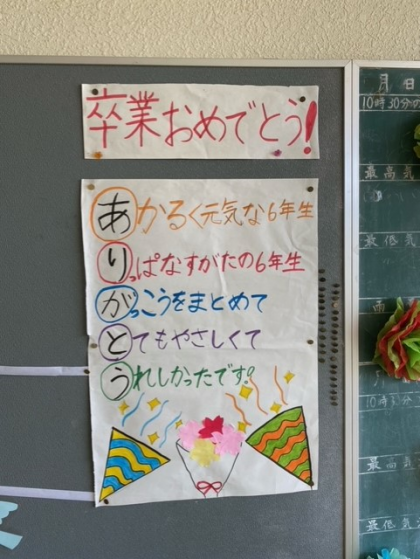 卒業おめでとう!
あかるく元気な6年生
りっぱなすがたの6年生
がっこうをまとめて
とてもやさしくて
うれしかったです。
月日
10時30分の
最高気
最低気
雨
10時30分
最高気
最低気